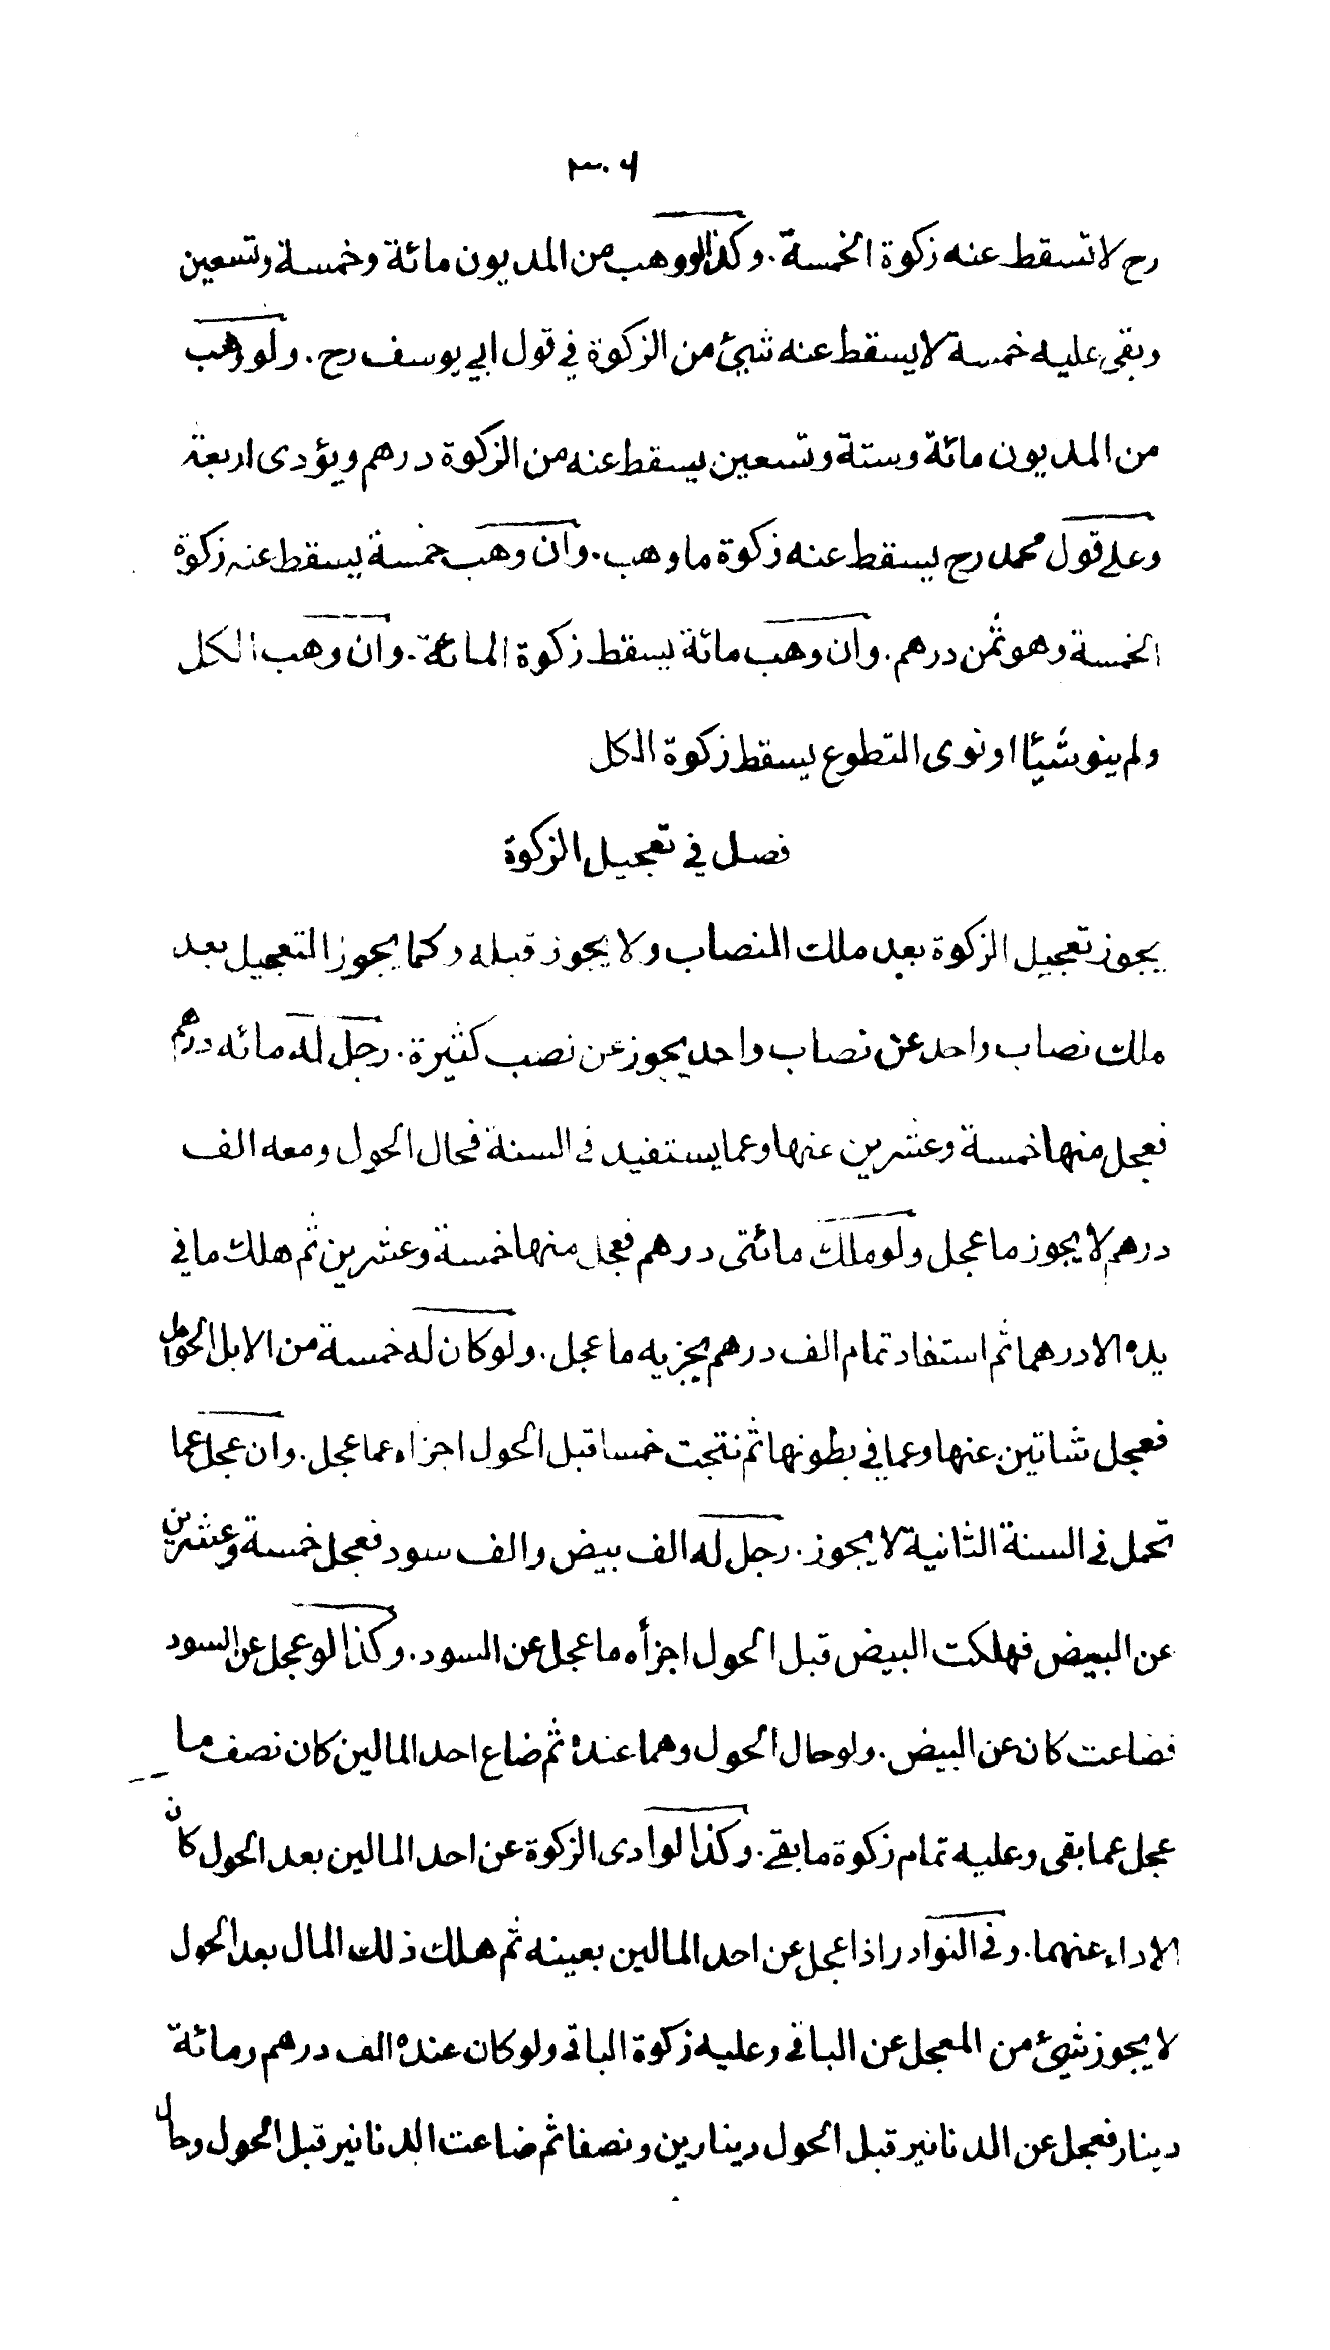 ٣٠٦
رح لا تسقط عنه زكوة الخمسة. وكذا لو وهب من المديون مائة وخمسة وتسعين
وبقى عليه خمسة لا يسقط عنه شئ من الزكوة في قول ابي يوسف رح. ولو وهب
من المديون مائة وستة وتسعين يسقط عنه من الزكوة درهم ويؤدى اربعة
وعلى قول محمد رح يسقط عنه زكوة ما وهب. وان وهب خمسة يسقط عنه زكوة
الخمسة وهو ثمن درهم. وان وهب مائة يسقط زكوة المائة. وان وهب الكل
ولم ينو شيئا او نوى التطوع يسقط زكوة الكل
فصل في تعجيل الزكوة
يجوز تعجيل الزكوة بعد ملك النصاب ولا يجوز قبله وكما يجوز التعجيل بعد
ملك نصاب واحد عن نصاب واحد يجوز عن نصب كثيرة. رجل له مائه درهم
فعجل منها خمسة وعشرين عنها وعما يستفيد في السنة فحال الحول ومعه الف
درهم لا يجوز ما عجل ولو ملك مائتى درهم فعجل منها خمسة وعشرين ثم هلك ما في
يده الا درهما ثم استفاد تمام الف درهم يجزيه ما عجل. ولو كان له خمسة من الابل الحوامل
فعجل شاتين عنها وعما في بطونها ثم نتجت خمسا قبل الحول اجزاه عما عجل. وان عجل عما
تحمل في السنة الثانية لا يجوز. رجل له الف بيض والف سود فعجل خمسة وعشرين
عن البيض فهلكت البيض قبل الحول اجزأه ما عجل عن السود. وكذا لو عجل عن السود
فضاعت كان عن البيض. ولو حال الحول وهما عنده ثم ضاع احد المالين كان نصف ما
عجل عما بقى وعليه تمام زكوة ما بقى. وكذا لو ادى الزكوة عن احد المالين بعد الحول كان
الاداء عنهما. وفى النوادر اذا عجل عن احد المالين بعينه ثم هلك ذلك المال بعد الحول
لا يجوز شئ من المعجل عن الباقى وعليه زكوة الباقى ولو كان عنده الف درهم ومائة
دينار فعجل عن الدنانير قبل الحول دينارين ونصفا ثم ضاعت الدنانير قبل الحول وحال